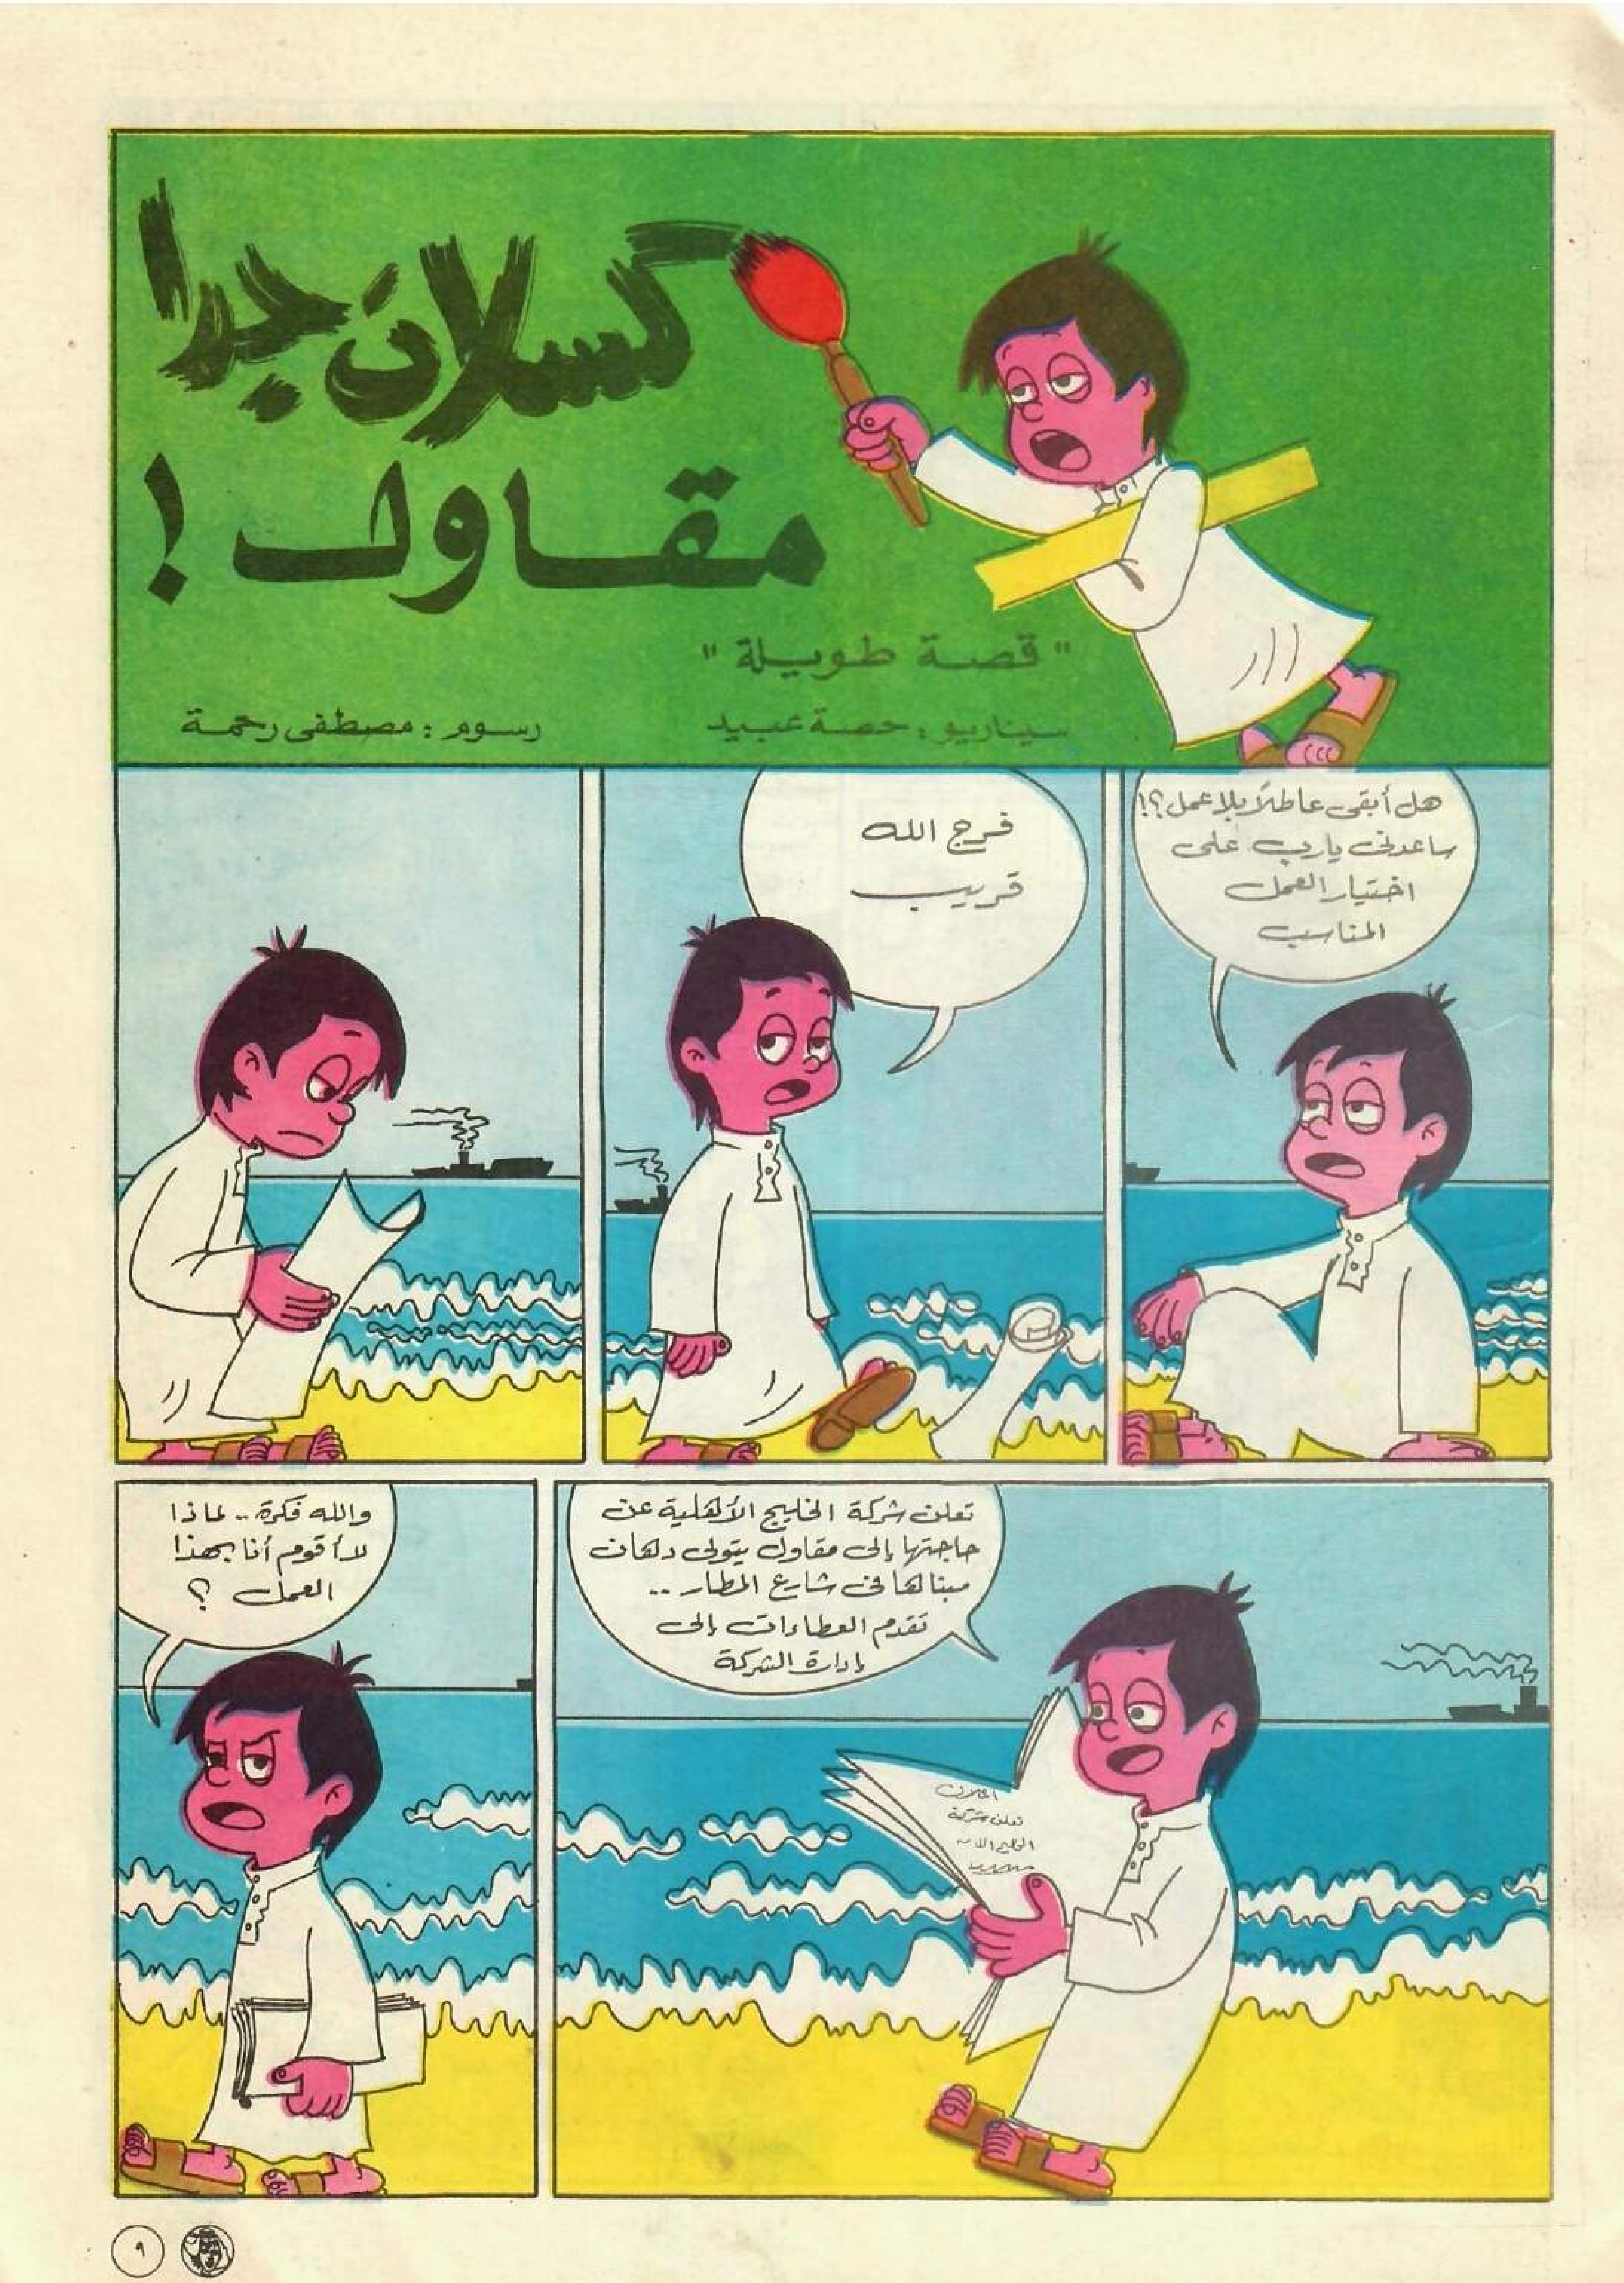 كسلان جدا
مقاول !
"قصة طويلة"
سيناريو : حصة عبيد
رسوم : مصطفى رحمة
هل أبقى عاطلاً بلا عمل ؟!
ساعدني يارب على
اختيار العمل
المناسب
فرج الله
قريب
تعلن شركة الخليج الأهلية عن
حاجتها إلى مقاول يتولى دهان
مبناها في شارع المطار ..
تقدم العطاءات إلى
إدارة الشركة
اعلان
تعلن شركة
الخليج الا
والله فكرة .. لماذا
لا أقوم أنا بهذا
العمل ؟
٩